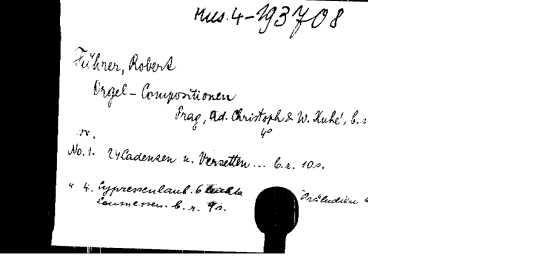 Mus. 4-193708
Führer, Robert
Orgel-Compositionen
Prag, ad. Christoph & W. Kuhé,
4°
No. 1. 24 Cadenzen u. Versetten ... 10 s.
" 4. Cypressenlaub. 6 Präludien